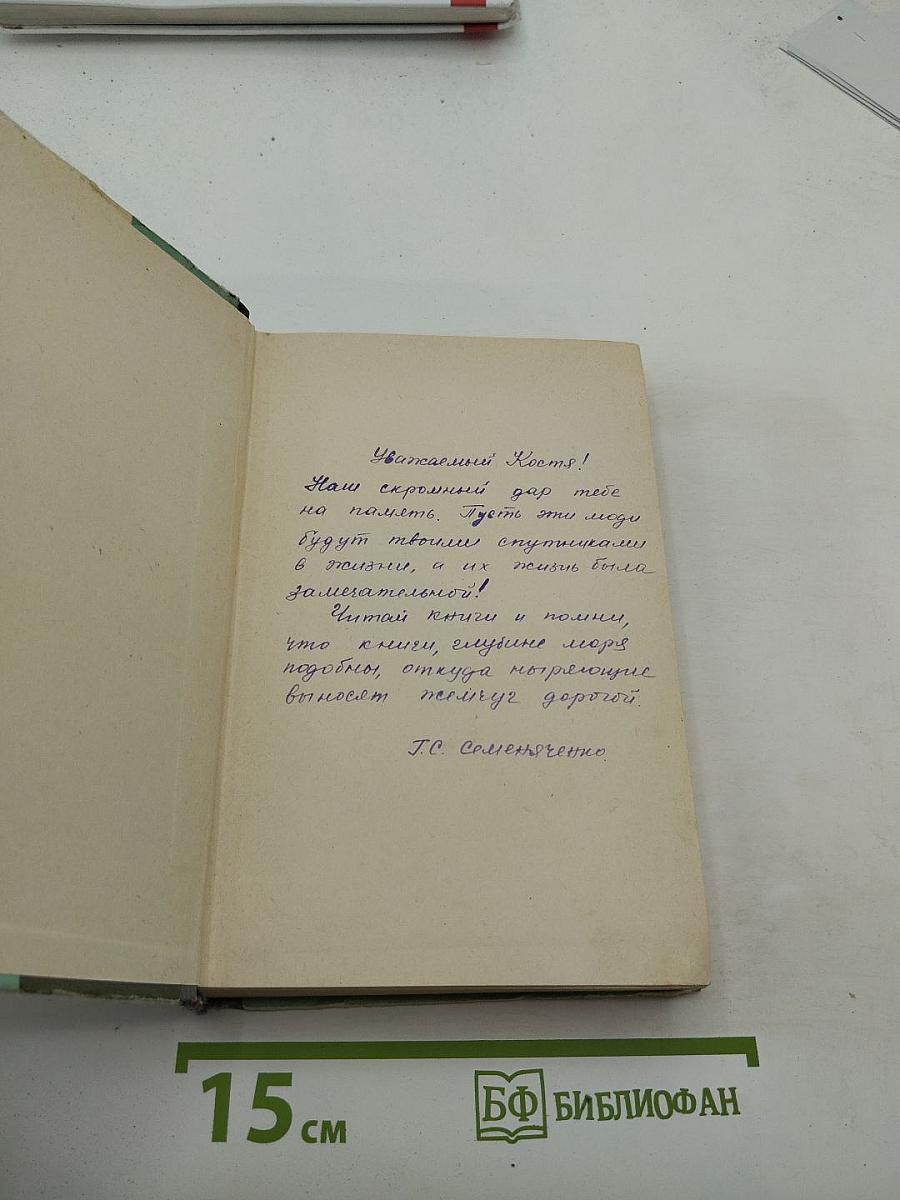 Уважаемый Костя!
Наш скромный дар тебе
на память. Пусть эти люди
будут твоими спутниками
в жизни, а их жизнь была
замечательной!
Читай книги и помни,
что книги, глубине моря
подобны, откуда ныряющие
выносят жемчуг дорогой.
Г.С. Семеняченко
15 см
БФ БИБЛИОФАН